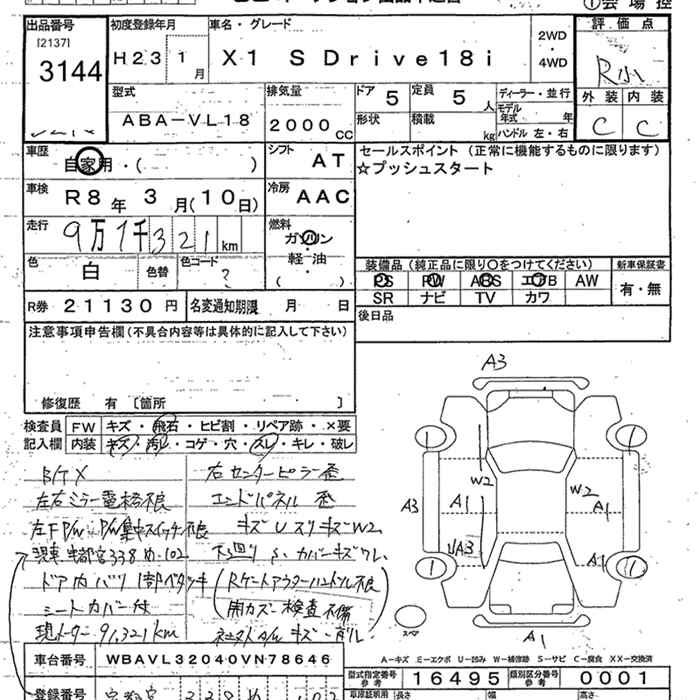 出品番号 初度登録年月 車名・グレード 評価点
[2137]
3144
H23 1月 X1 S Drive18i 2WD ・ 4WD R小
外装 内装
C C
型式 ABA-VL18 排気量 2000cc ドア 5 定員 5人 ディーラー・並行
形状 積載 kg モデル年式 年
ハンドル 左・右
車歴 自家用・( ) シフト AT
セールスポイント (正常に機能するものに限ります)
☆プッシュスタート
車検 R8年 3月(10日) 冷房 AAC
走行 9万1千321km 燃料 ガソリン
軽・油
( )
色 白 色替 色コード ?
装備品 (純正品に限り○をつけてください) 新車保証書
PS PW ABS エアB AW 有・無
SR ナビ TV カワ
R券 21130円 名変通知期限 月 日
後日品
注意事項申告欄(不具合内容等は具体的に記入して下さい)
修復歴 有 〔箇所
検査員 FW キズ・飛石・ヒビ割・リペア跡・×要
記入欄 内装 キズ・汚レ・コゲ・穴・スレ・キレ・破レ
右センターピラー歪
左右ミラー電格不良 エンドパネル 歪
キズUスリキズW2
ドア内バリ
シートカバー付
現メーター91,321km
下廻りS、カバーキズワレ
(Rゲートアウターハンドル不良
A3
W2 W2
A3 A1 A1
UA3 A1
1 1 1 1
スペア
A1
A-キズ E-エクボ U-凹み W-補修跡 S-サビ C-腐食 XX-交換済
車台番号 WBAVL32040VN78646
型式指定番号 参考 16495 類別区分番号 参考 0001
登録番号
長さ 幅 高さ